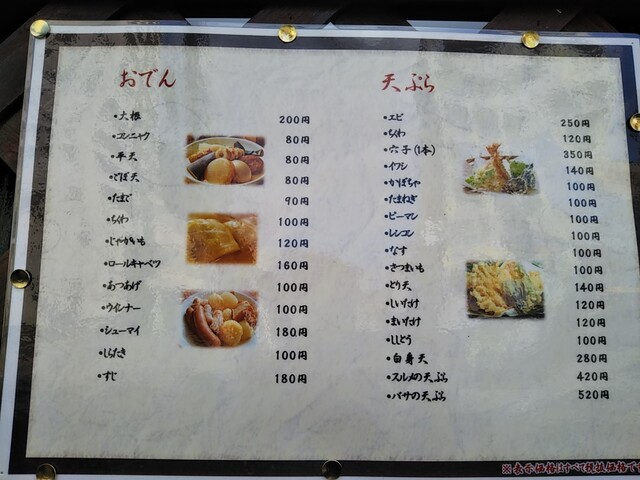 おでん
・大根 200円
・コンニャク 80円
・平天 80円
・ごぼ天 80円
・たまご 90円
・ちくわ 100円
・じゃがいも 120円
・ロールキャベツ 160円
・あつあげ 100円
・ウインナー 100円
・シューマイ 180円
・しらたき 100円
・すじ 180円
天ぷら
・エビ 250円
・ちくわ 120円
・穴子(1本) 350円
・イワシ 140円
・かぼちゃ 100円
・たまねぎ 100円
・ピーマン 100円
・レンコン 100円
・なす 100円
・さつまいも 100円
・とり天 140円
・しいたけ 120円
・まいたけ 120円
・ししとう 100円
・白身天 280円
・スルメの天ぷら 420円
・バサの天ぷら 520円
※表示価格はすべて税抜価格で